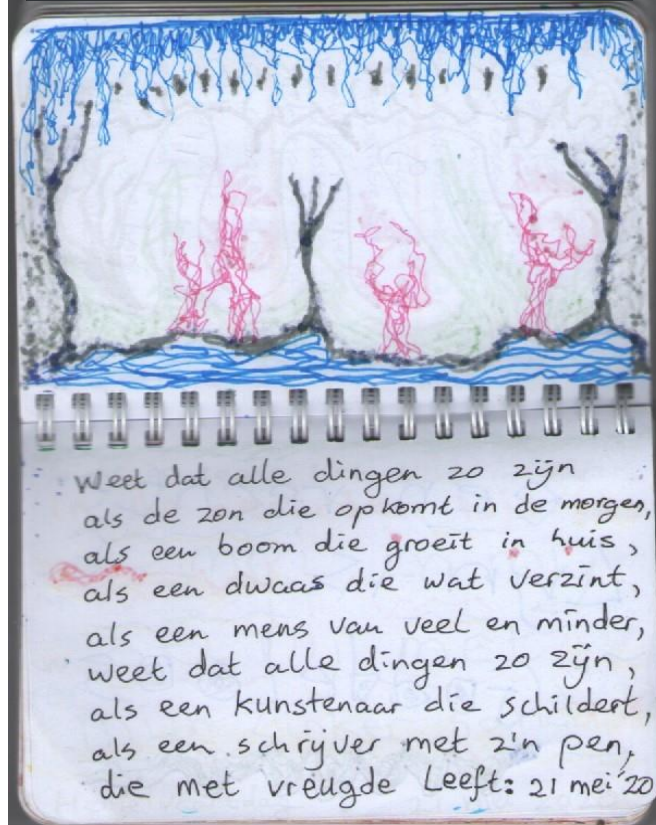 Weet dat alle dingen zo zijn
als de zon die opkomt in de morgen,
als een boom die groeit in huis,
als een dwaas die wat verzint,
als een mens van veel en minder,
weet dat alle dingen zo zijn,
als een kunstenaar die schildert,
als een schrijver met z'n pen,
die met vreugde Leeft: 21 mei '20